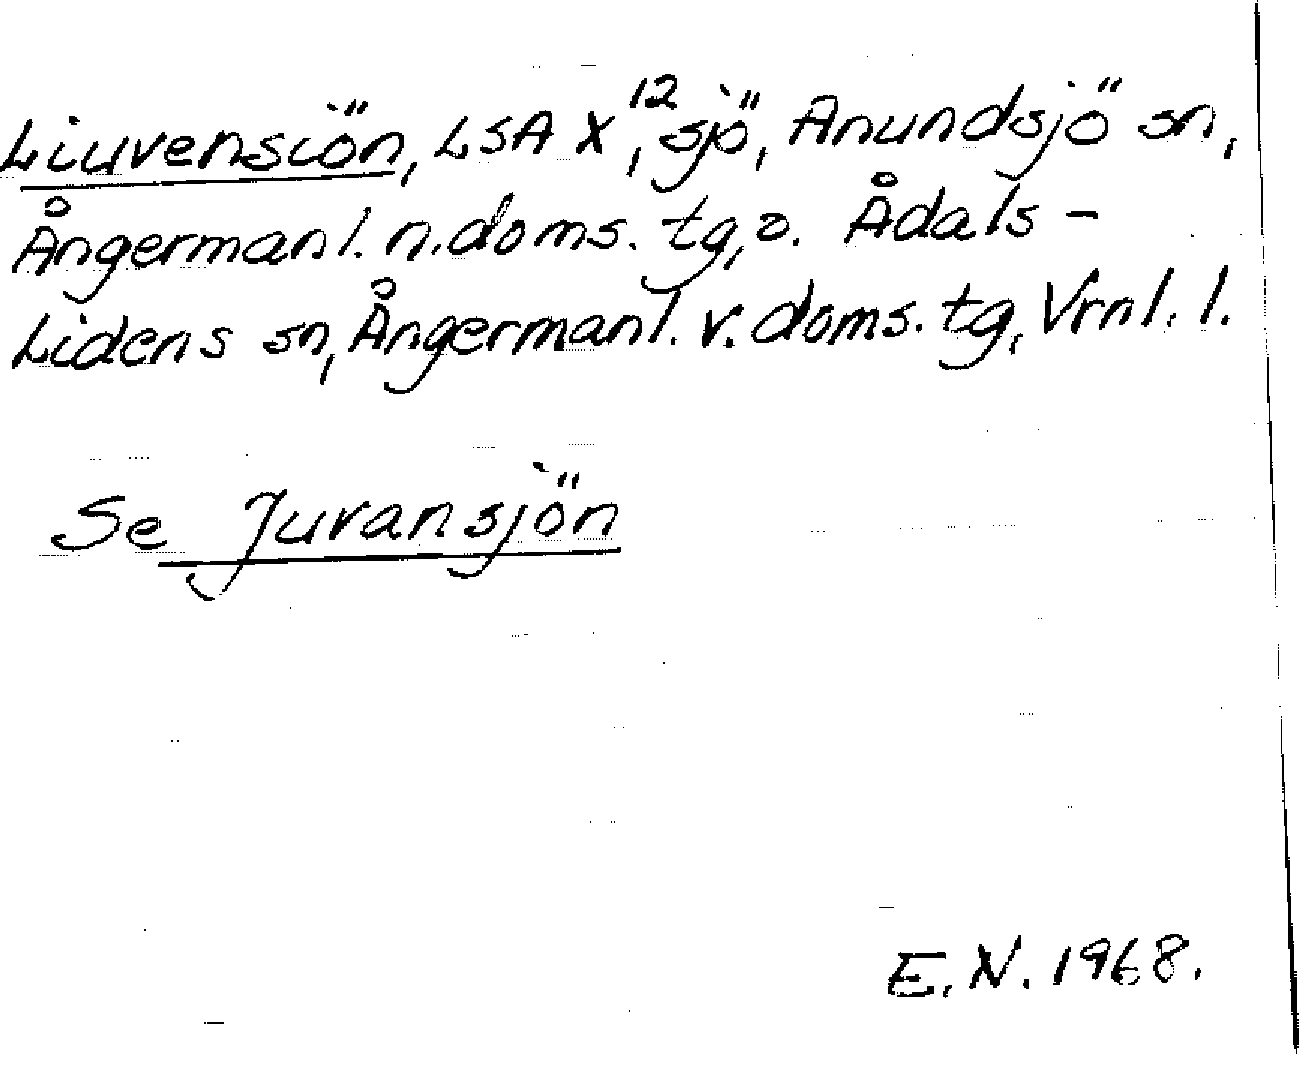 Liuvensiön, LSA X¹², sjö, Anundsjö sn,
Ångermanl. n. doms. tg, o. Ådals-
Lidens sn, Ångermanl. v. doms. tg, Vrnl. l.
Se Juvansjön
E.N. 1968.